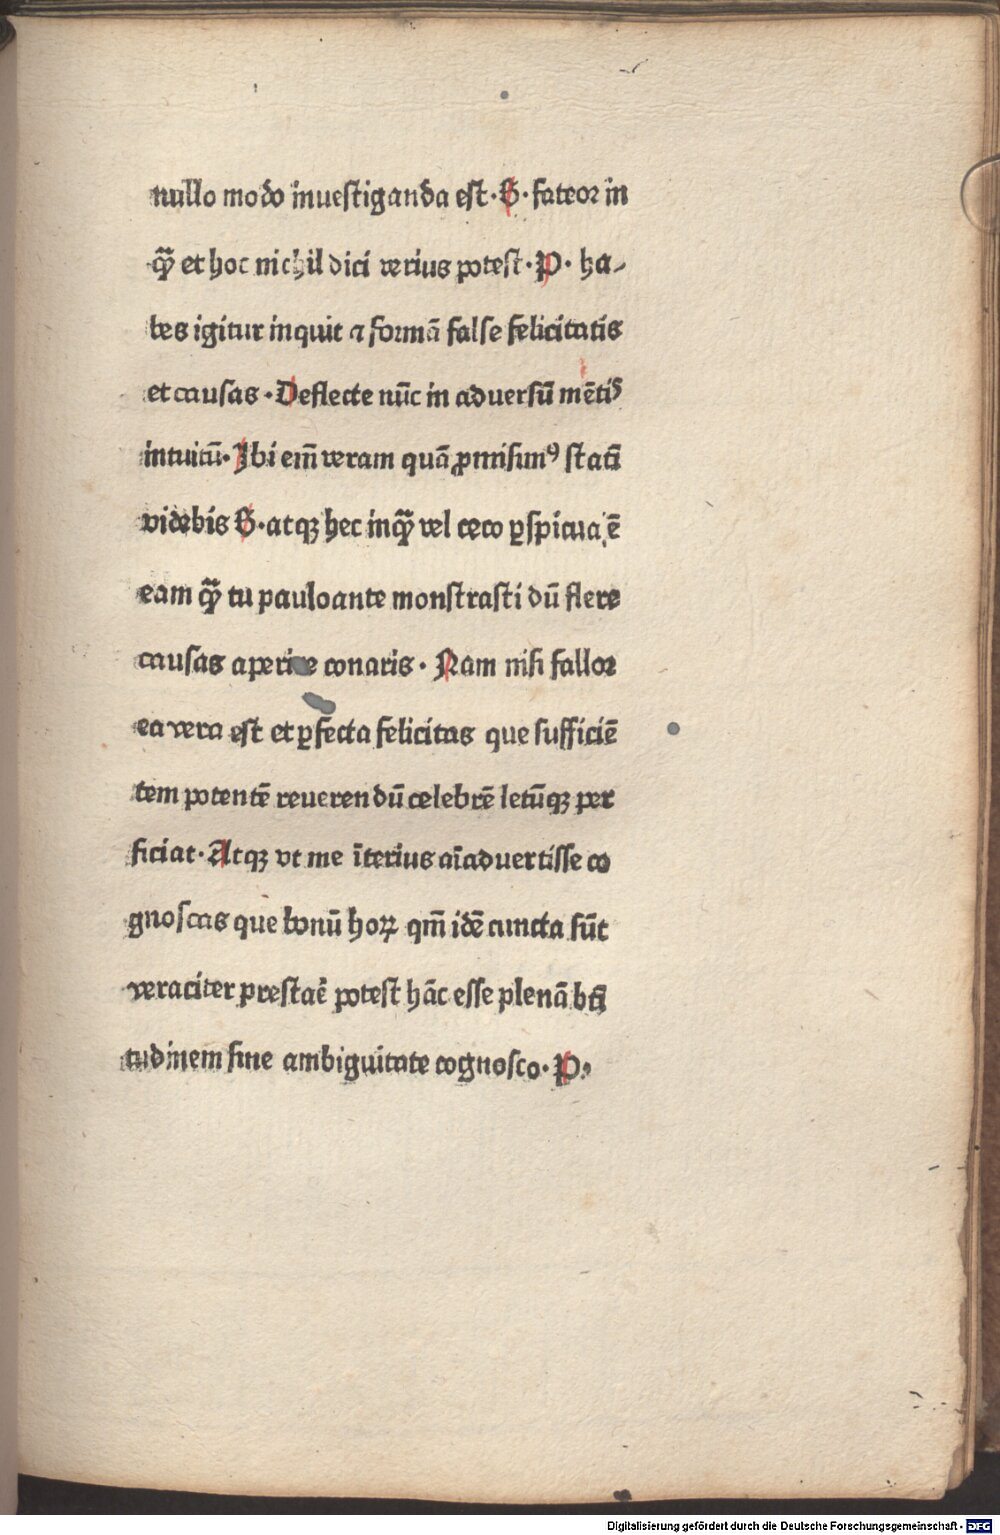 nullo modo inuestiganda est · B · fateor in
qͣꝫ et hoc nichil dici verius potest · P · ha-
bes igitur inquit ⁊ formā false felicitatis
et causas · Deflecte nūc in aduersū mētis
intuitū · Ibi em̄ veram quā ꝓmisimꝰ statī
videbis B · atqꝫ hec inqͣꝫ vel ceco ꝑspicua ē
eam qͣꝫ tu pauloante monstrasti dū flere
causas aperire conaris · Nam nisi fallor
ea vera est et ꝑfecta felicitas que sufficiē
tem potentē reuerendū celebrē letūqꝫ per
ficiat · Atqꝫ vt me īterius aīaduertisse co
gnoscas que bonū hoꝝ qm̄ idē cuncta sūt
veraciter prestaē potest hāc esse plenā bti
tudinem sine ambiguitate cognosco · P ·
Digitalisierung gefördert durch die Deutsche Forschungsgemeinschaft - DFG